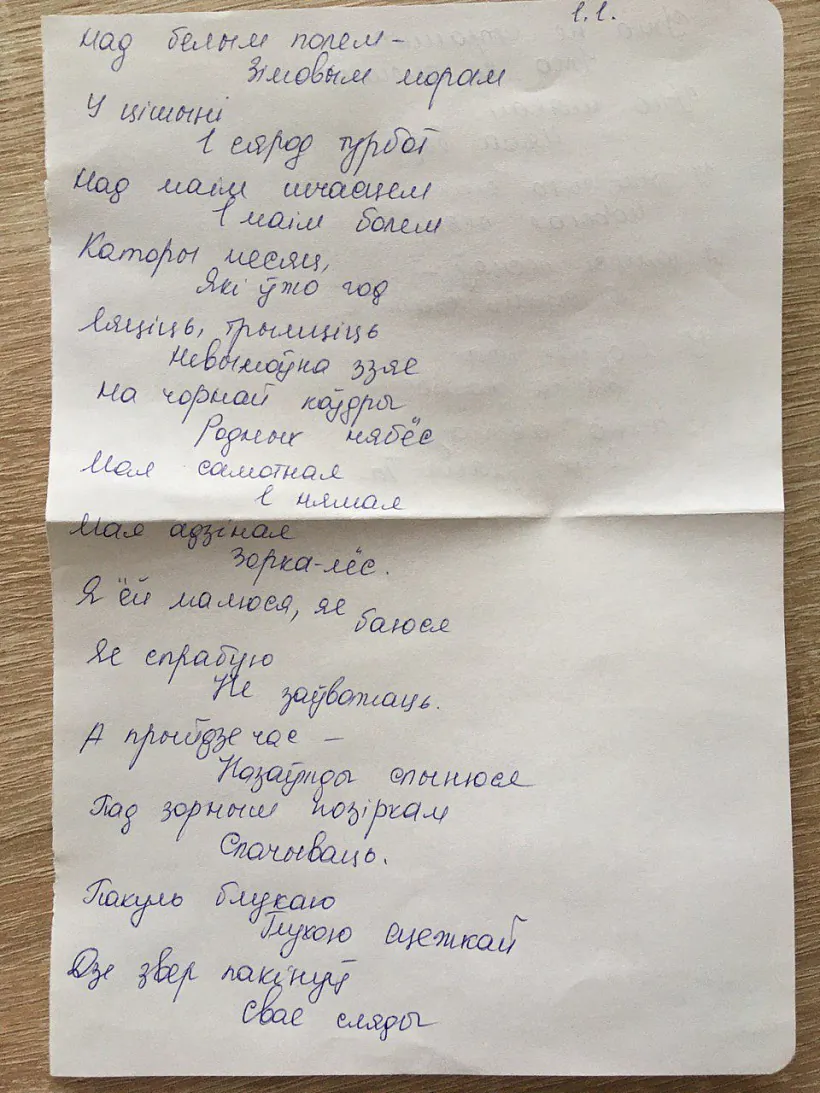 1.1.
Над белым полем -
Зімовым морам
У цішыні
І сярод турбот
Над маім шчасцем
І маім болем
Каторы месяц,
Які ўжо год
Ляціць, трымціць
Невымоўна ззяе
На чорнай коўдры
Родных нябёс
Мая самотная
І нямая
Мая адзіная
Зорка-лёс.
Я ёй малюся, яе
баюся
Яе спрабую
Не заўважаць.
А прыйдзе час -
Назаўжды спынюся
Пад зорным позіркам
Спачываць.
Пакуль блукаю
Глухою сцежкай
Дзе звер пакінуў
Свае сляды